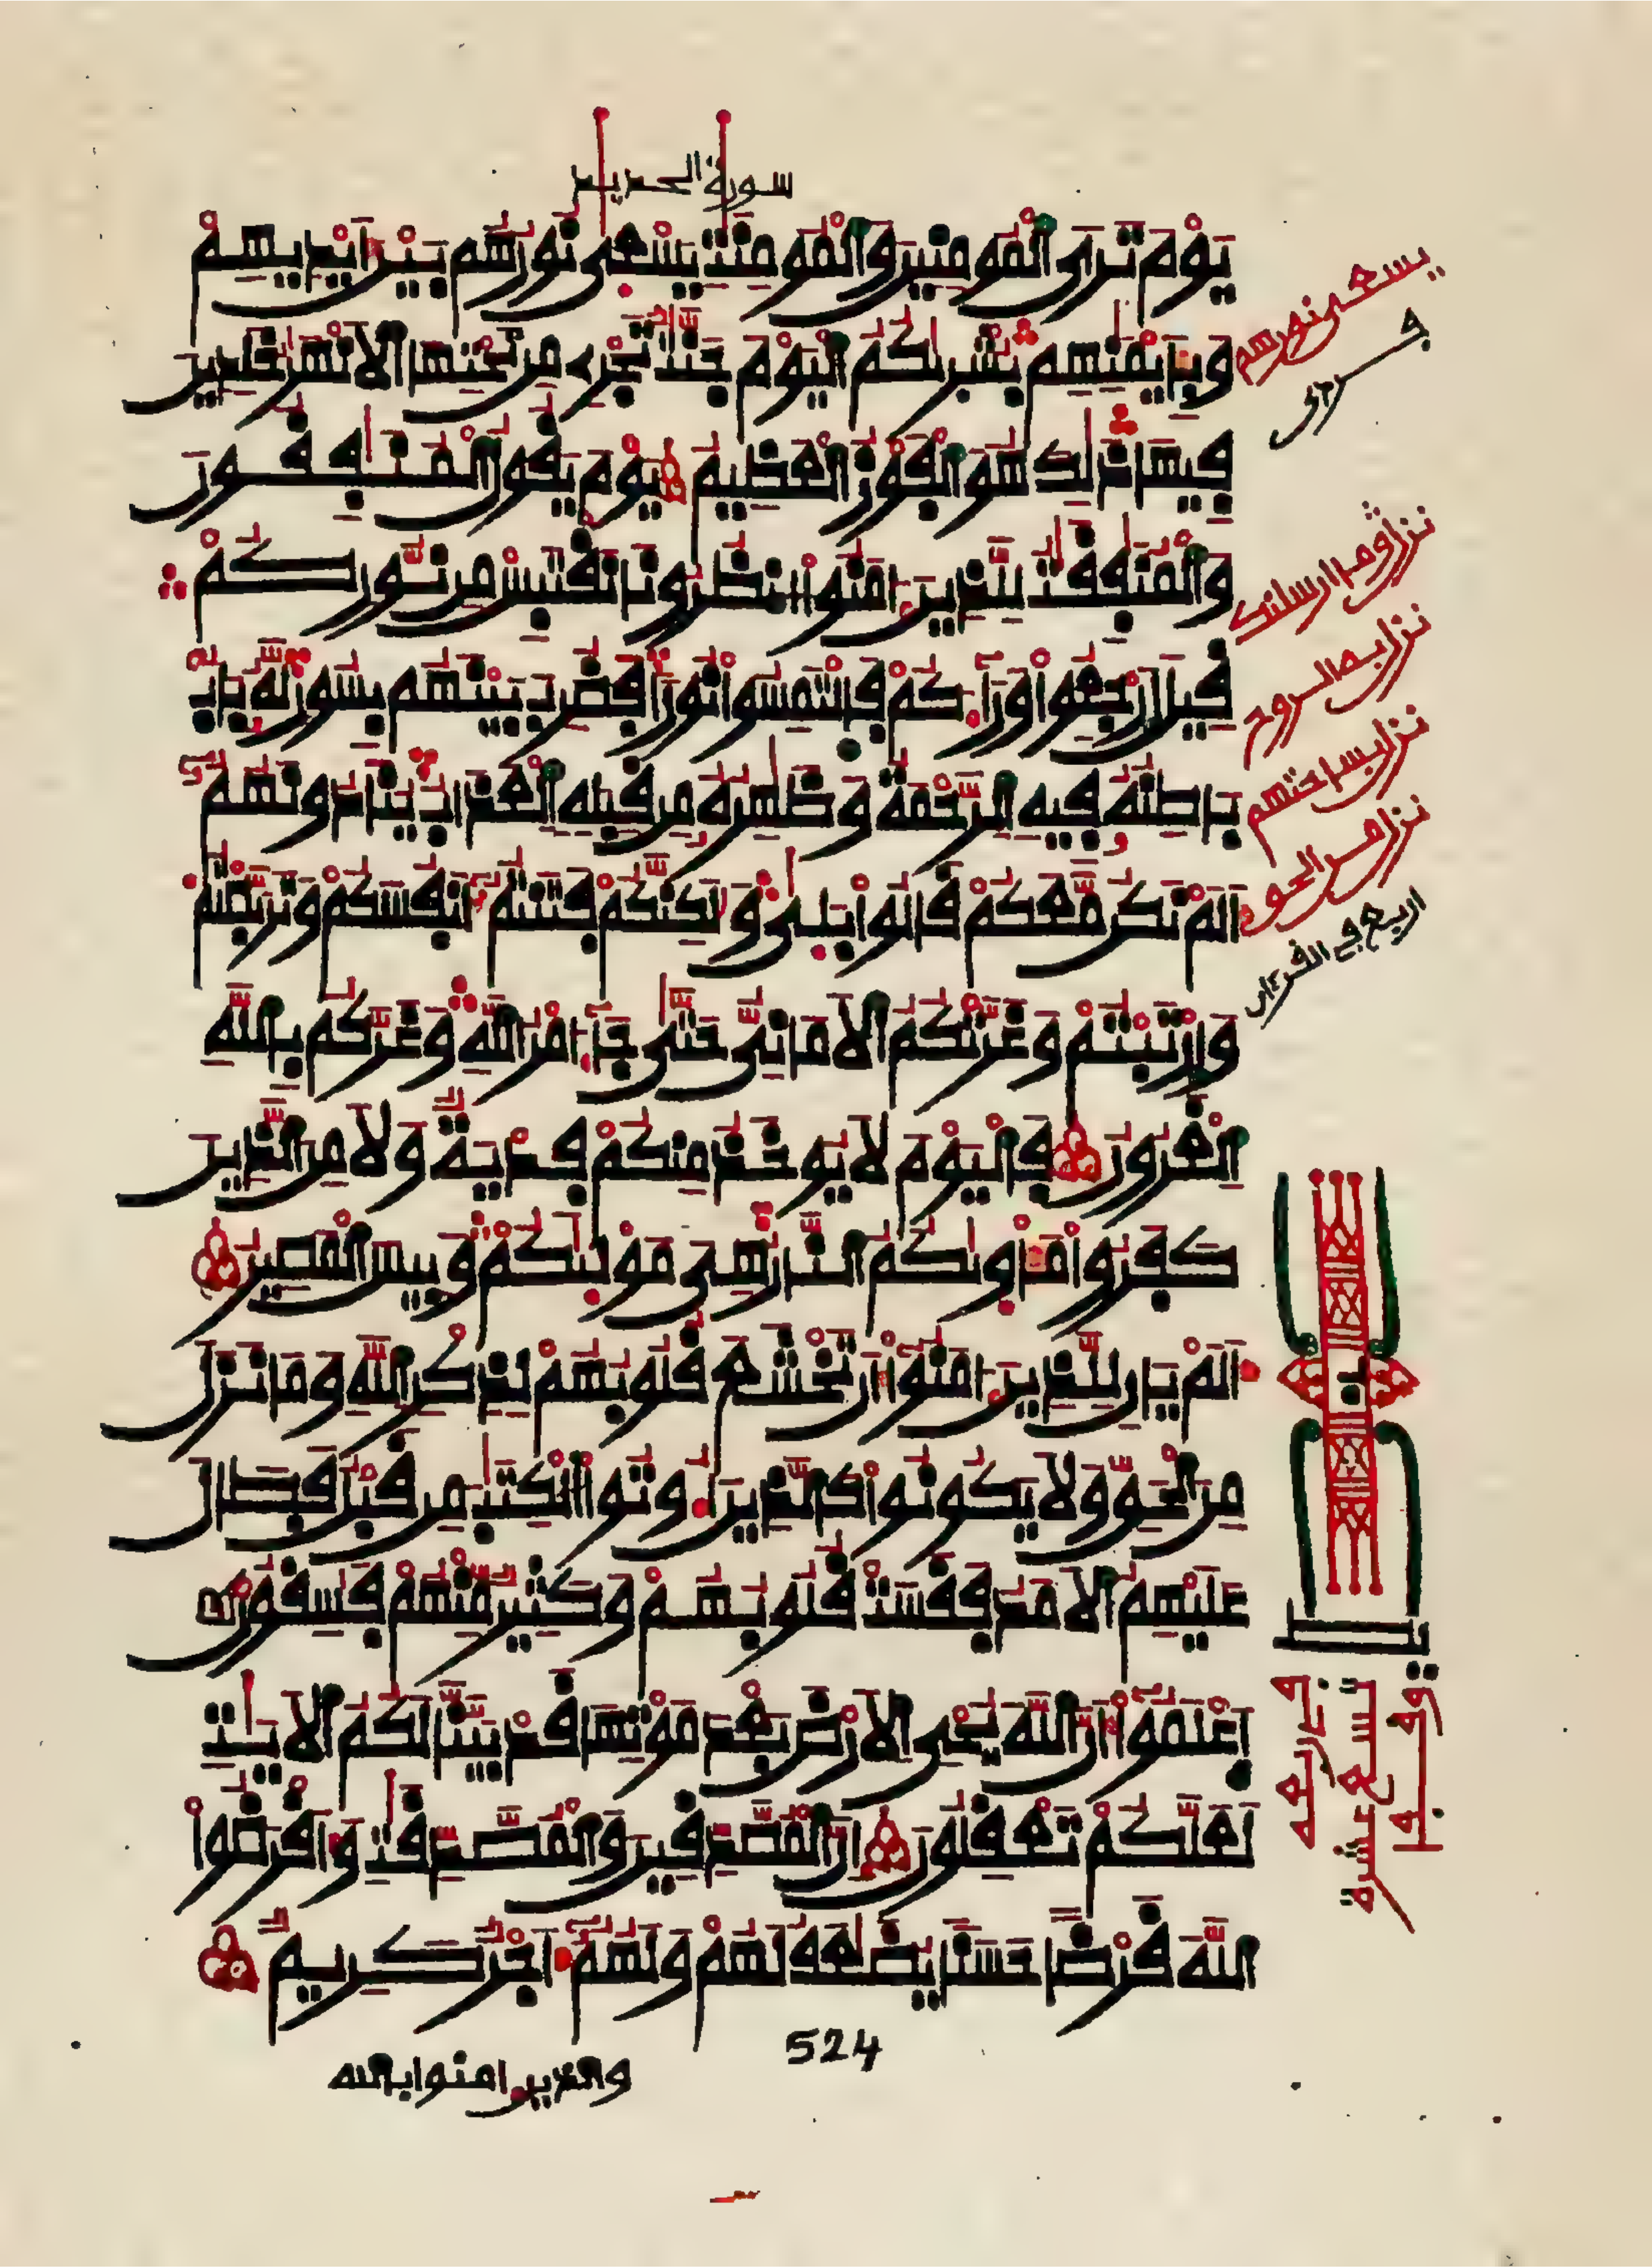 سورة الحديد
يَوْمَ تَرَى ٱلْمُومِنِينَ وَٱلْمُومِنَٰتِ يَسْعَىٰ نُورُهُم بَيْنَ أَيْدِيهِمْ
وَبِأَيْمَٰنِهِم بُشْر۪ىٰكُمُ ٱلْيَوْمَ جَنَّٰتٌ تَجْرِے مِن تَحْتِهَا ٱلَانْهَٰرُ خَٰلِدِينَ
فِيهَا ذَٰلِكَ هُوَ ٱلْفَوْزُ ٱلْعَظِيمُ يَوْمَ يَقُولُ ٱلْمُنَٰفِقُونَ
وَٱلْمُنَٰفِقَٰتُ لِلذِينَ ءَامَنُوا ٱنظُرُونَا نَقْتَبِسْ مِن نُّورِكُمْ
قِيلَ ٱرْجِعُوا وَرَآءَكُمْ فَٱلْتَمِسُوا نُورًا فَضُرِبَ بَيْنَهُم بِسُورٍ لَّهُۥ بَابٌ
بَاطِنُهُۥ فِيهِ ٱلرَّحْمَةُ وَظَٰهِرُهُۥ مِن قِبَلِهِ ٱلْعَذَابُ يُنَادُونَهُمُۥٓ
أَلَمْ نَكُن مَّعَكُمْ قَالُوا بَلَىٰ وَلَٰكِنَّكُمْ فَتَنتُمُۥٓ أَنفُسَكُمْ وَتَرَبَّصْتُمْ
وَٱرْتَبْتُمْ وَغَرَّتْكُمُ ٱلَامَانِيُّ حَتَّىٰ جَآ أَمْرُ ٱللَّهِ وَغَرَّكُم بِٱللَّهِ
ٱلْغَرُورُ فَٱلْيَوْمَ لَا يُوخَذُ مِنكُمْ فِدْيَةٌ وَلَا مِنَ ٱلذِينَ
كَفَرُوا مَأْوَىٰكُمُ ٱلنَّارُ هِىَ مَوْلَىٰكُمْ وَبِيسَ ٱلْمَصِيرُ
أَلَمْ يَانِ لِلذِينَ ءَامَنُوٓا أَن تَخْشَعَ قُلُوبُهُمْ لِذِكْرِ ٱللَّهِ وَمَا نَزَلَ
مِنَ ٱلْحَقِّ وَلَا يَكُونُوا كَٱلذِينَ أُوتُوا ٱلْكِتَٰبَ مِن قَبْلُ فَطَالَ
عَلَيْهِمُ ٱلَامَدُ فَقَسَتْ قُلُوبُهُمْ وَكَثِيرٌ مِّنْهُمْ فَٰسِقُونَ
ٱعْلَمُوٓا أَنَّ ٱللَّهَ يُحْىِ ٱلَارْضَ بَعْدَ مَوْتِهَا قَدْ بَيَّنَّا لَكُمُ ٱلَايَٰتِ
لَعَلَّكُمْ تَعْقِلُونَ إِنَّ ٱلْمُصَّدِّقِينَ وَٱلْمُصَّدِّقَٰتِ وَأَقْرَضُوا
ٱللَّهَ قَرْضًا حَسَنًا يُضَٰعَفُ لَهُمْ وَلَهُمُۥٓ أَجْرٌ كَرِيمٌ
524
والذين ءامنوا بالله
يسعى نورهم
نزل وما ارسلنك
نزل به الروح
نزل بساحتهم
نزل من الحق
اربع في القرءان